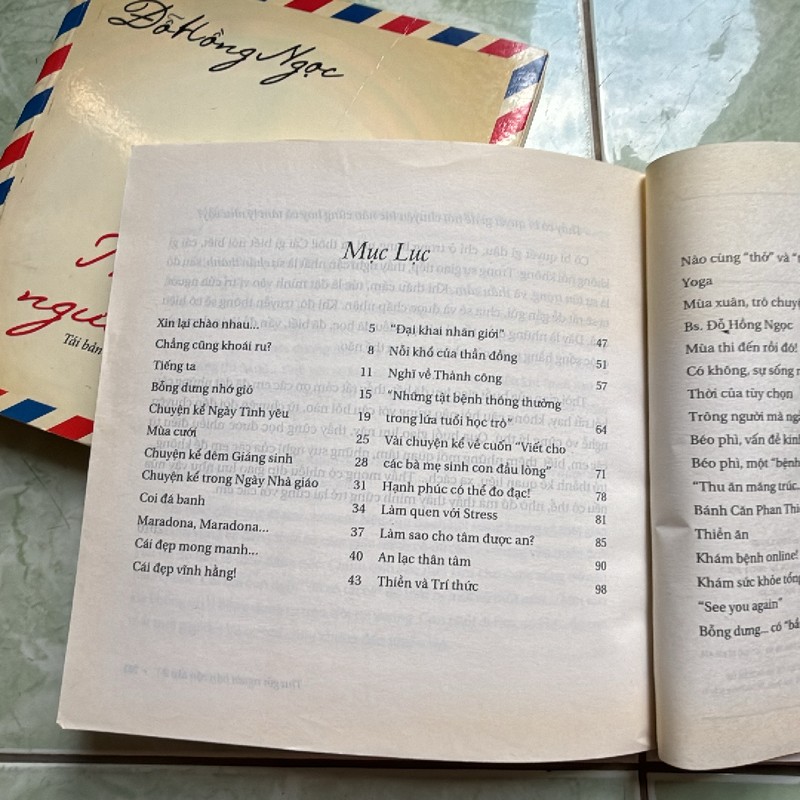 Đỗ Hồng Ngọc
Tái bản
Mục Lục
Xin lại chào nhau... 5
Chẳng cũng khoái ru? 8
Tiếng ta 11
Bỗng dưng nhớ gió 15
Chuyện kể Ngày Tình yêu 19
Mùa cưới 25
Chuyện kể đêm Giáng sinh 28
Chuyện kể trong Ngày Nhà giáo 31
Coi đá banh 34
Maradona, Maradona... 37
Cái đẹp mong manh... 40
Cái đẹp vĩnh hằng! 43
"Đại khai nhãn giới" 47
Nỗi khổ của thần đồng 51
Nghĩ về Thành công 57
"Những tật bệnh thông thường
trong lứa tuổi học trò" 64
Vài chuyện kể về cuốn "Viết cho
các bà mẹ sinh con đầu lòng" 71
Hạnh phúc có thể đo đạc! 78
Làm quen với Stress 81
Làm sao cho tâm được an? 85
An lạc thân tâm 90
Thiền và Trí thức 98
Nào cùng "thở" và
Yoga
Mùa xuân, trò chuyện
Bs. Đỗ Hồng Ngọc
Mùa thi đến rồi đó!
Có không, sự sống
Thời của tùy chọn
Trông người mà
Béo phì, vấn đề
Béo phì, một "bệnh
"Thu ăn măng trúc...
Bánh Căn Phan
Thiền ăn
Khám bệnh online!
Khám sức khỏe tổng
"See you again"
Bỗng dưng... có